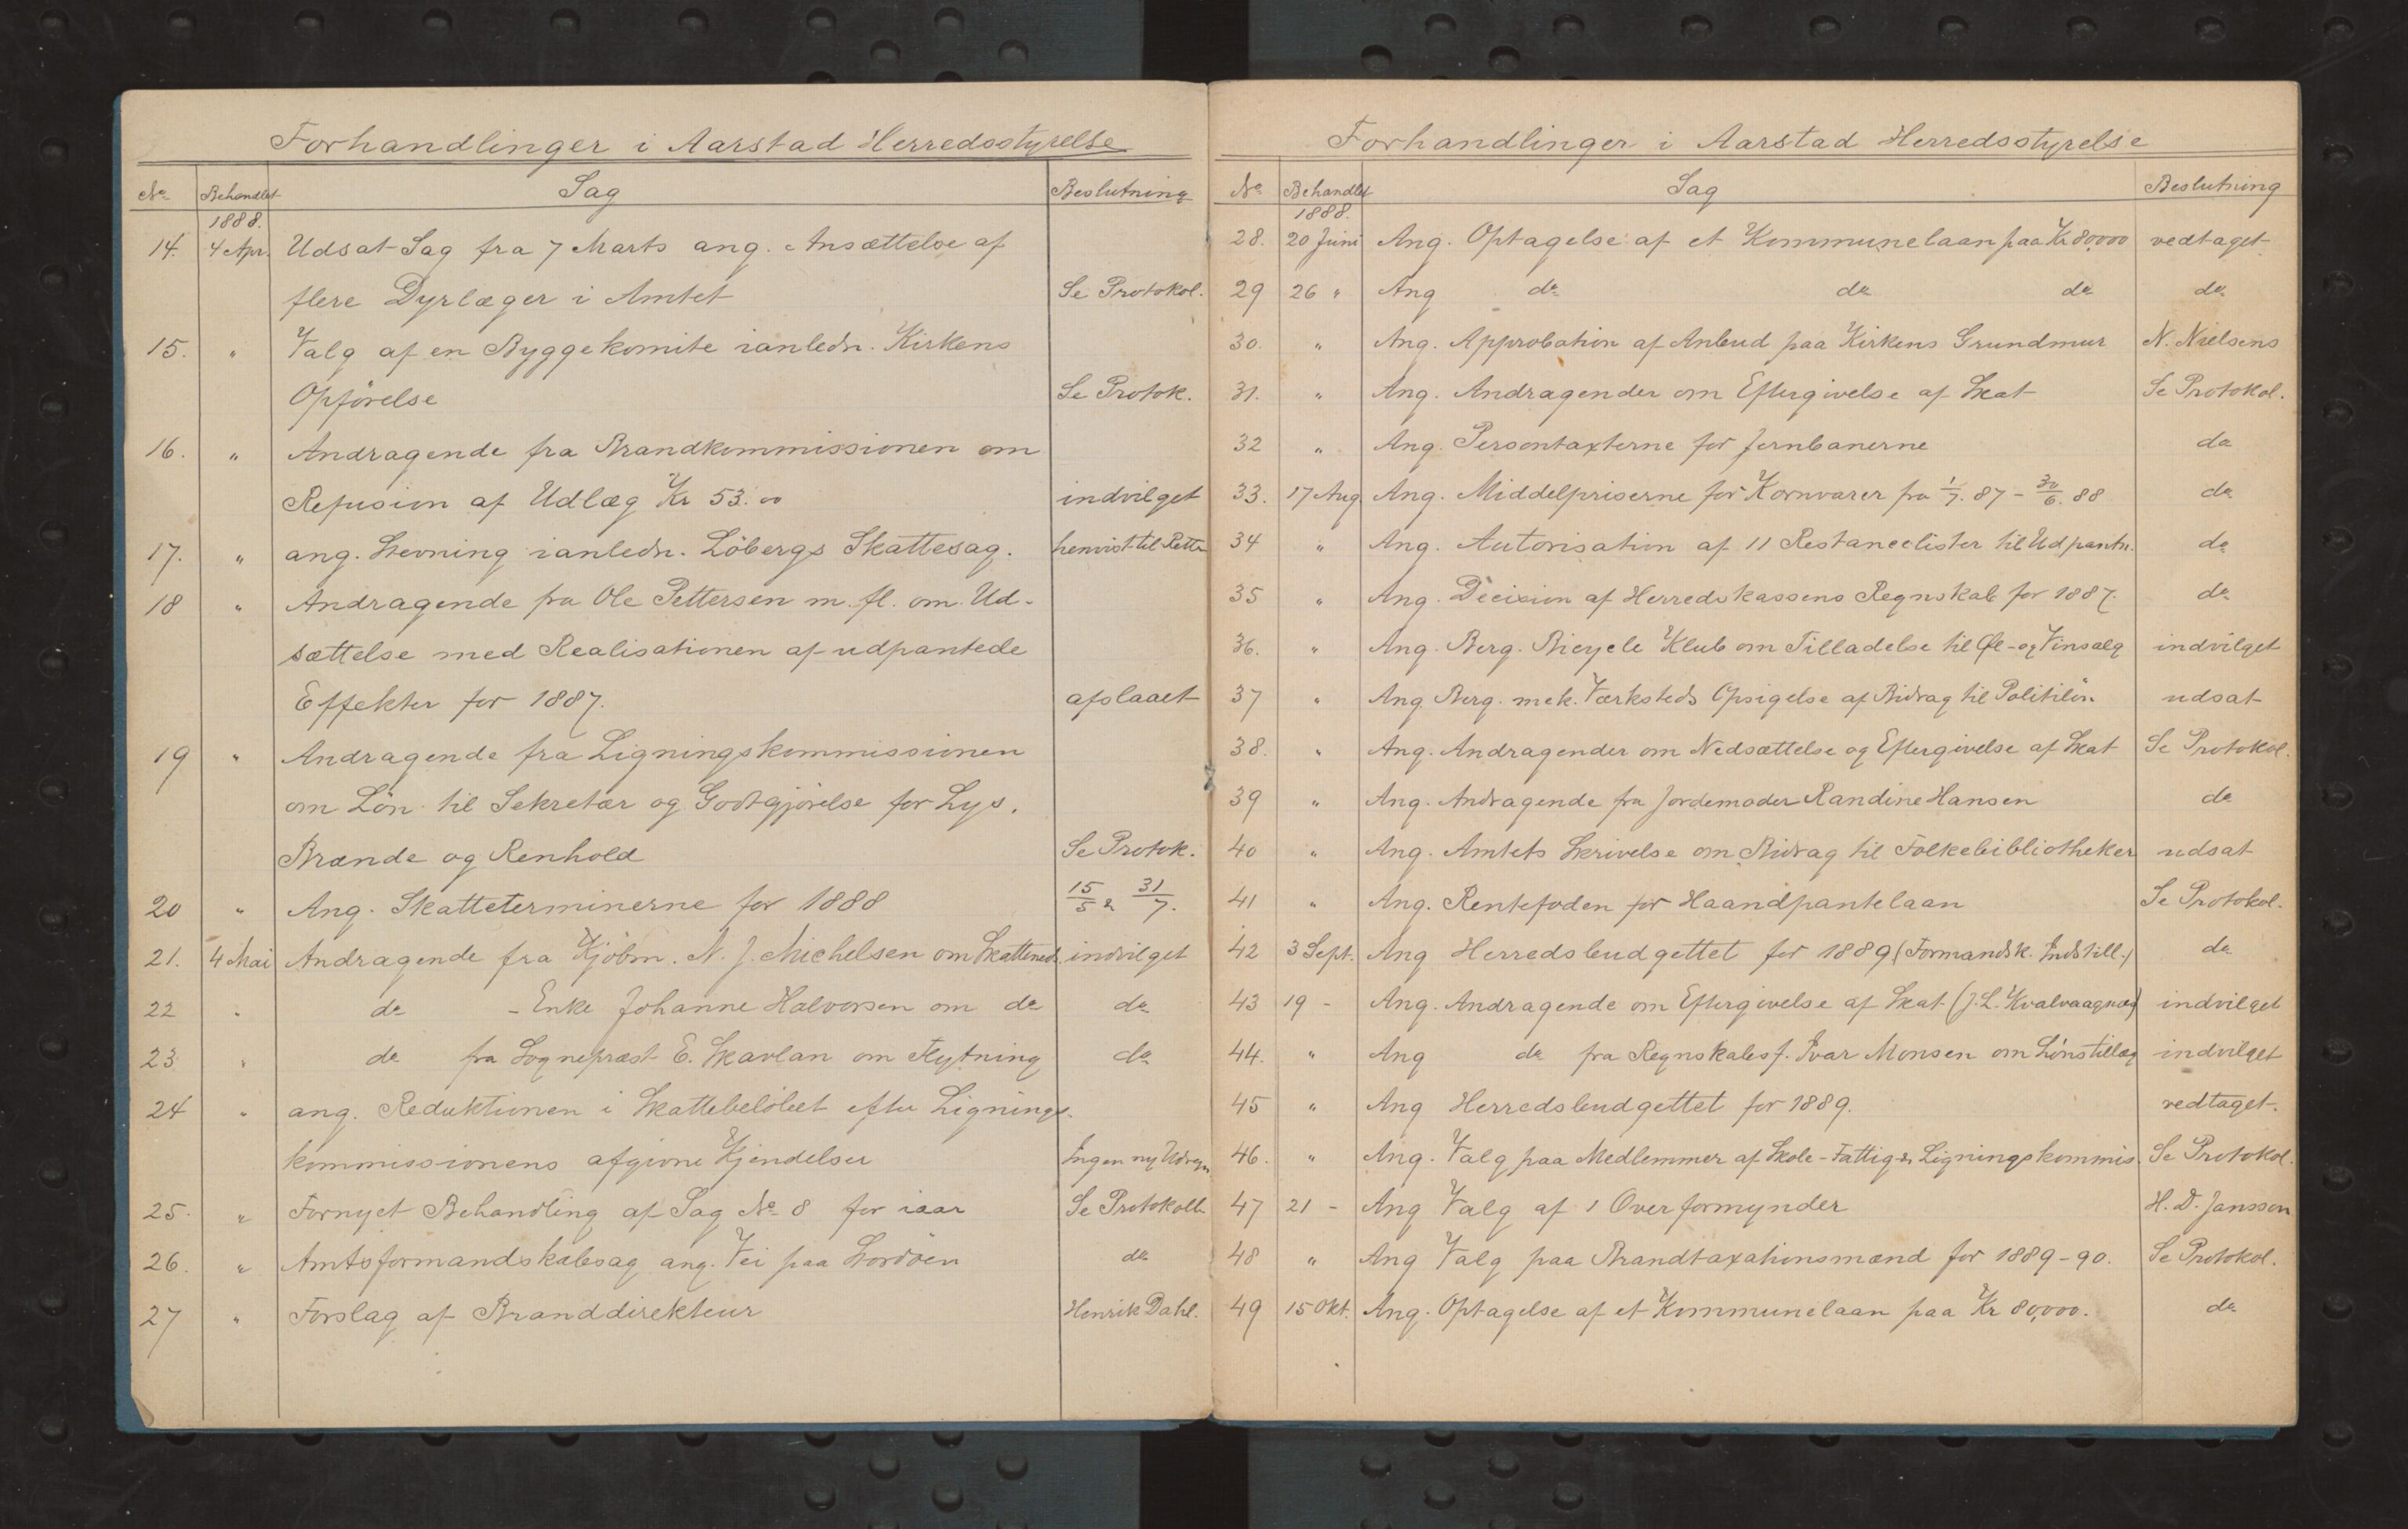 Forhandlinger i Aarstad Herredsstyrelse
No Behandlet Sag Beslutning
1888.
14. 4 Apr. Udsat Sag fra 7 Marts ang. Ansættelse af
flere Dyrlæger i Amtet Se Protokol.
15. " Valg af en Byggekomite ianledn. Kirkens
Opförelse Se Protok.
16. " Andragende fra Brandkommissionen om
Refusion af Udlæg Kr 53.00 indvilget
17. " ang. Stevning ianledn. Löbergs Skattesag. henvist til Retten
18 " Andragende fra Ole Pettersen m. fl. om Ud-
sættelse med Realisationen af udpantede
Effekter for 1887. afslaaet
19 " Andragende fra Ligningskommissionen
om Lön til Sekretær og Godtgjörelse for Lys,
Brænde og Renhold Se Protok.
20 " Ang. Skatteterminerne for 1888 15/5 & 31/7.
21. 4 Mai Andragende fra Kjöbm. N. J. Michelsen om Skatteneds. indvilget
22 " do - Enke Johanne Halvorsen om do do
23 " do fra Sognepræst E. Skavlan om Flytning do
24 " ang. Reduktionen i Skattebelöbet efter Lignings-
kommissionens afgivne Kjendelser Ingen ny Udregn
25. " Fornyet Behandling af Sag No 8 for iaar Se Protokoll
26. " Amtsformandskabssag ang. Vei paa Stordöen do
27 " Forslag af Branddirekteur Henrik Dahl.
Forhandlinger i Aarstad Herredsstyrelse
No Behandlet Sag Beslutning
1888.
28. 20 Juni Ang. Optagelse af et Kommunelaan paa Kr 80,000 vedtaget
29 26 " Ang do do do do
30. " Ang. Approbation af Anbud paa Kirkens Grundmur N. Nielsens
31. " Ang. Andragender om Eftergivelse af Skat Se Protokol.
32 " Ang. Persontaxterne for Jernbanerne do
33. 17 Aug Ang. Middelpriserne for Kornvarer fra 1/7. 87 - 30/6. 88 do
34 " Ang. Autorisation af 11 Restancelister til Udpantn. do
35 " Ang. Decision af Herredskassens Regnskab for 1887. do
36. " Ang. Berg. Bicycle Klub om Tilladelse til Øl- og Vinsalg indvilget
37 " Ang. Berg. mek. Værksteds Opsigelse af Bidrag til Politilön udsat
38. " Ang. Andragender om Nedsættelse og Eftergivelse af Skat Se Protokol.
39 " Ang. Andragende fra Jordemoder Randine Hansen do
40 " Ang. Amtets Skrivelse om Bidrag til Folkebibliotheker udsat
41 " Ang. Rentefoden for Haandpantelaan Se Protokol.
42 3 Sept. Ang Herredsbudgettet for 1889 (Formandsk. Indstill.) do
43 19 - Ang. Andragende om Eftergivelse af Skat (J. L. Kvalvaagnæs) indvilget
44. " Ang do fra Regnskabsf. Ivar Monsen om Lönstillæg indvilget
45 " Ang Herredsbudgettet for 1889. vedtaget.
46. " Ang. Valg paa Medlemmer af Skole- Fattig & Ligningskommis. Se Protokol.
47 21 - Ang Valg af 1 Overformynder H. D. Janssen
48 " Ang Valg paa Brandtaxationsmænd for 1889-90. Se Protokol.
49 15 Okt. Ang. Optagelse af et Kommunelaan paa Kr 80,000. do